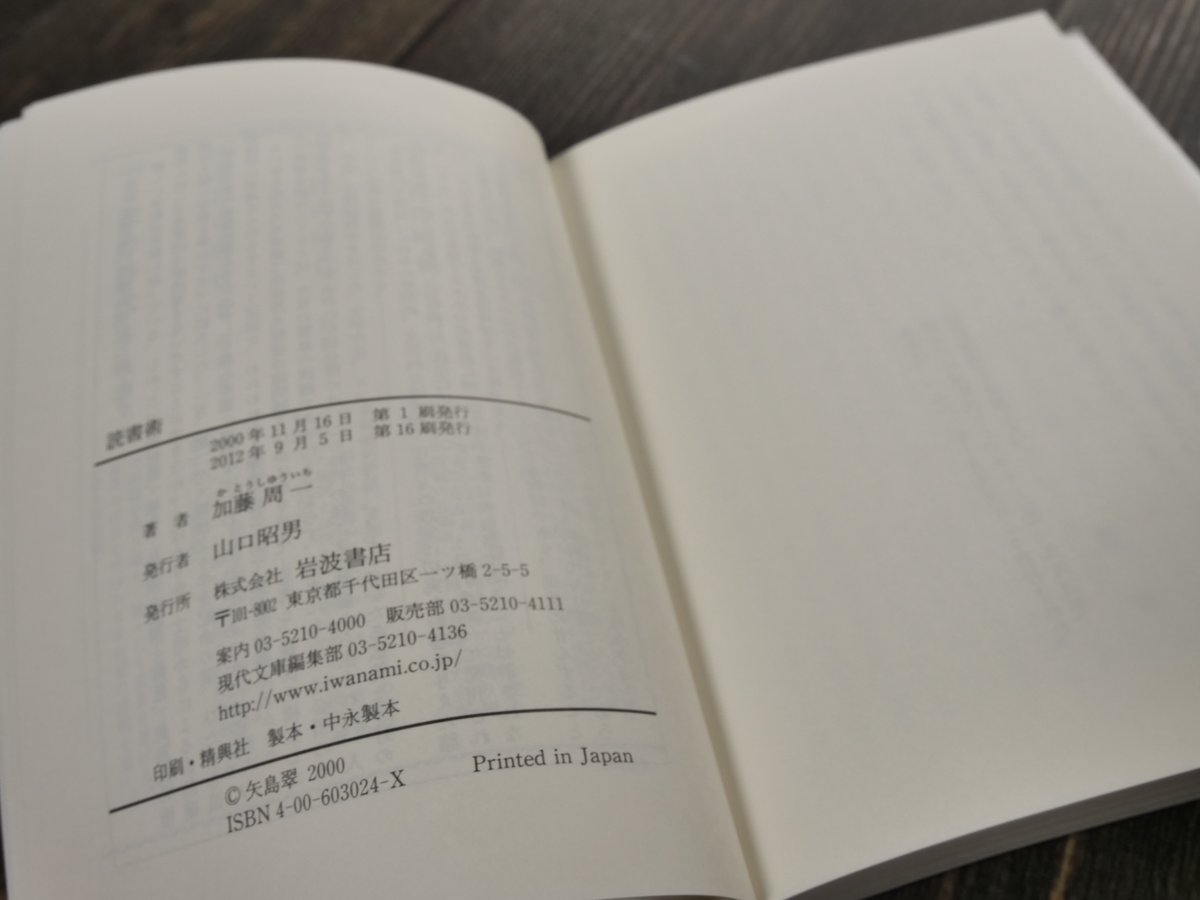 読書術
2000年11月16日 第1刷発行
2012年9月5日 第16刷発行
かとうしゅういち
著者 加藤周一
発行者 山口昭男
発行所 株式会社 岩波書店
〒101-8002 東京都千代田区一ツ橋2-5-5
案内 03-5210-4000 販売部 03-5210-4111
現代文庫編集部 03-5210-4136
http://www.iwanami.co.jp/
印刷・精興社 製本・中永製本
© 矢島翠 2000
ISBN 4-00-603024-X Printed in Japan